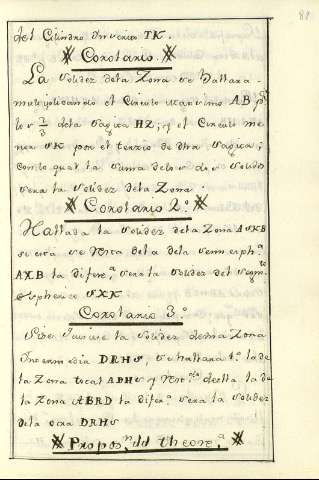 81
del Cilindro Inverso TK
Corolario.
La solidez dela Zona se hallara
multiplicando el Circulo maximo AB p.r
los 2/3 dela sagita HZ; y el Circulo me
nor SK por el tercio de dha sagita;
con lo qual la suma delos dos solidos
sera la solidez dela Zona.
Corolario 2.º
Hallada la solidez dela Zona ASKB
si esta se resta dela dela semiesph.ª
AXB la difer.ª sera la solidez del segm.to
Espherico SXK
Corolario 3.º
Si se la solidez de una Zona
Intermedia DRHS, se hallara 1.º la de
la Zona total ABHS y rest. de ella la de
la Zona ABRD la difer.ª sera la solidez
dela otra DRHS
Propos.n del theore.ª